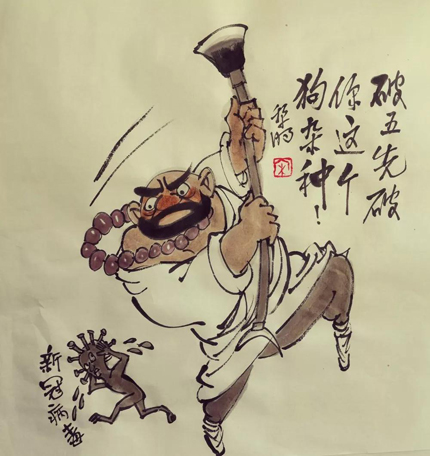 破五先破
你这个
狗杂种！
新冠病毒